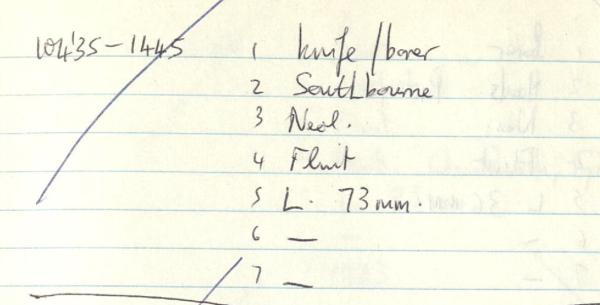 10435-1445 1 knife/borer
2 Southbourne
3 Neol.
4 Flint
5 L. 73 mm.
6 —
7 —